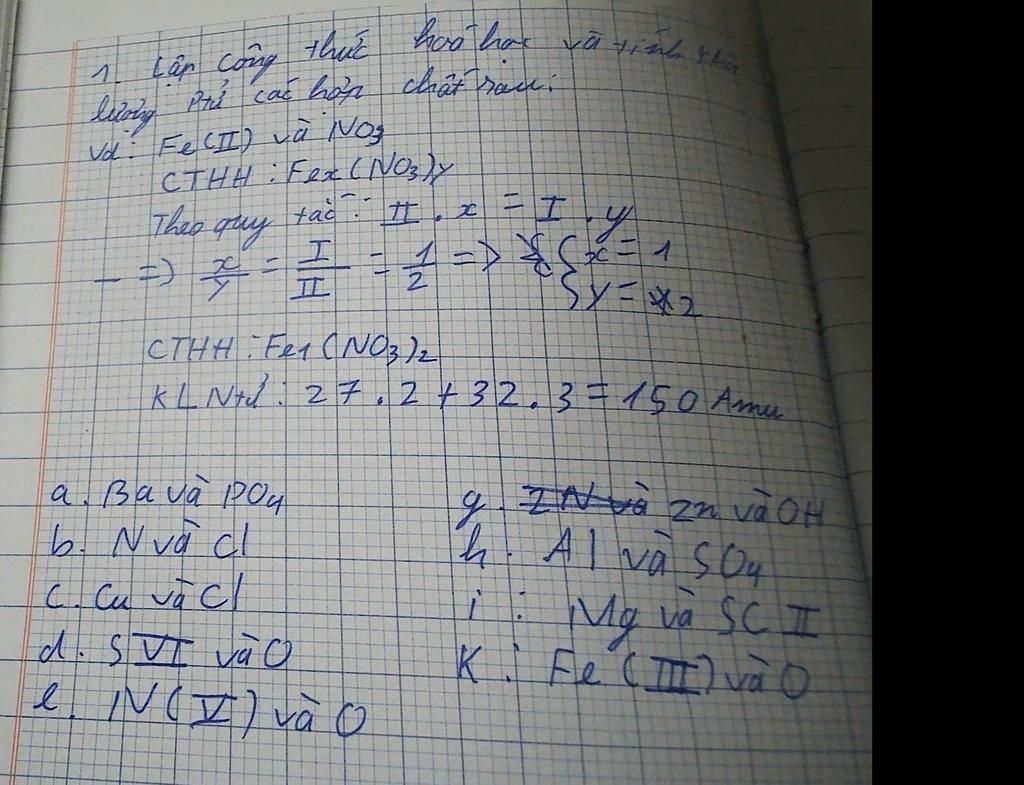 1. Lập công thức hoá học và tính khối
lượng Ptử các hợp chất sau:
Vd: Fe(II) và NO3
CTHH : Fex(NO3)y
Theo quy tắc: II . x = I . y
=> x/y = I/II = 1/2 => { x = 1
{ y = 2
CTHH : Fe1(NO3)2
KLNtử : 27.2+32.3=150 Amu
a. Ba và PO4
b. N và Cl
c. Cu và Cl
d. S VI và O
e. N(V) và O
g. ZN và Zn và OH
h. Al và SO4
i : Mg và SC II
K : Fe (III) và O